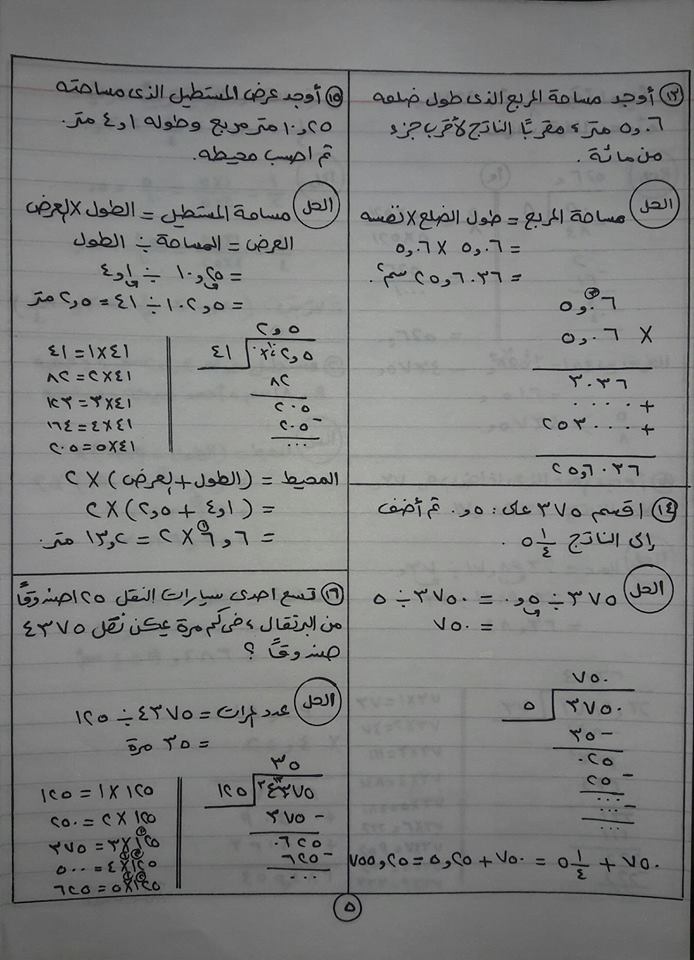 ١٣ أوجد مساحة المربع الذى طول ضلعه
٥٫٠٦ متر، مقربًا الناتج لأقرب جزء
من مائة.
الحل
مساحة المربع = طول الضلع × نفسه
= ٥٫٠٦ × ٥٫٠٦
= ٢٥٫٦٠٣٦ سم٢.
٥٫٠٦
× ٥٫٠٦
٣٠٣٦
+ ٠٠٠٠
+ ٢٥٣٠٠٠
٢٥٫٦٠٣٦
١٤ اقسم ٣٧٥ على: ٠٫٥ ثم أضف
إلى الناتج ٥ ١/٤ .
الحل
٣٧٥ ÷ ٠٫٥ = ٣٧٥٠ ÷ ٥
= ٧٥٠
٧٥٠
٥ ٣٧٥٠
٣٥ -
٠٢٥
٢٥ -
٠٠٠
٠٠٠
٧٥٠ + ٥ ١/٤ = ٧٥٠ + ٥٫٢٥ = ٧٥٥٫٢٥
١٥ أوجد عرض المستطيل الذى مساحته
١٠٫٢٥ متر مربع وطوله ٤٫١ متر.
ثم احسب محيطه.
الحل
مساحة المستطيل = الطول × العرض
العرض = المساحة ÷ الطول
= ١٠٫٢٥ ÷ ٤٫١
= ١٠٢٫٥ ÷ ٤١ = ٢٫٥ متر
٢٫٥
٤١ ١٠٢٫٥
٨٢
٢٠٥
٢٠٥ -
٠٠٠
٤١ × ١ = ٤١
٤١ × ٢ = ٨٢
٤١ × ٣ = ١٢٣
٤١ × ٤ = ١٦٤
٤١ × ٥ = ٢٠٥
المحيط = (الطول + العرض) × ٢
= (٤٫١ + ٢٫٥) × ٢
= ٦٫٦ × ٢ = ١٣٫٢ متر.
١٦ تسع احدى سيارات النقل ١٢٥ صندوقًا
من البرتقال، فى كم مرة يمكن نقل ٤٣٧٥
صندوقاً ؟
الحل
عدد المرات = ٤٣٧٥ ÷ ١٢٥
= ٣٥ مرة
٣٥
١٢٥ ٤٣٧٥
٣٧٥ -
٠٦٢٥
٦٢٥ -
٠٠٠
١٢٥ × ١ = ١٢٥
١٢٥ × ٢ = ٢٥٠
١٢٥ × ٣ = ٣٧٥
١٢٥ × ٤ = ٥٠٠
١٢٥ × ٥ = ٦٢٥
٥